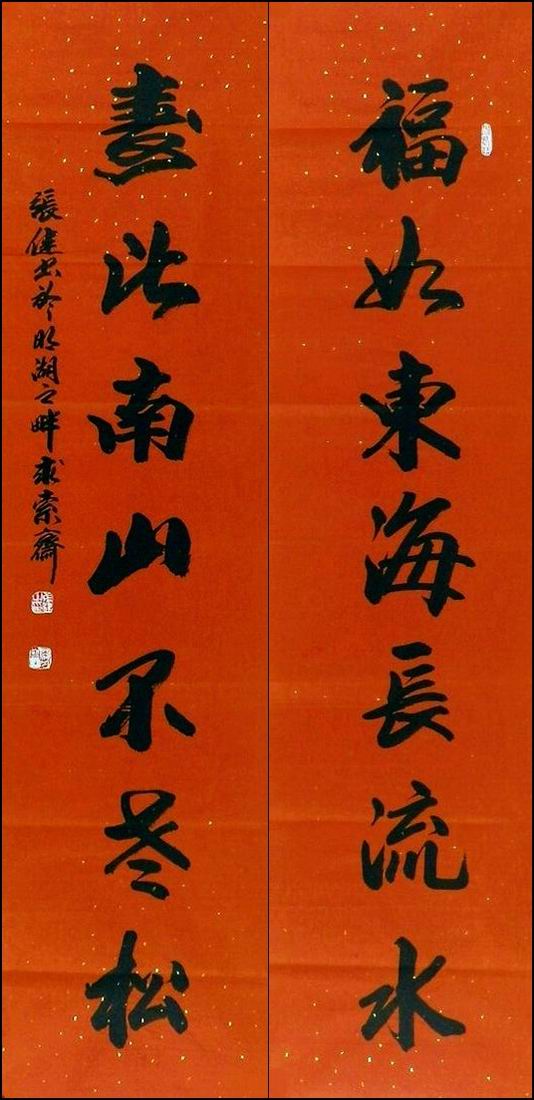 福如東海長流水
壽比南山不老松
張健書於明湖之畔求索齋